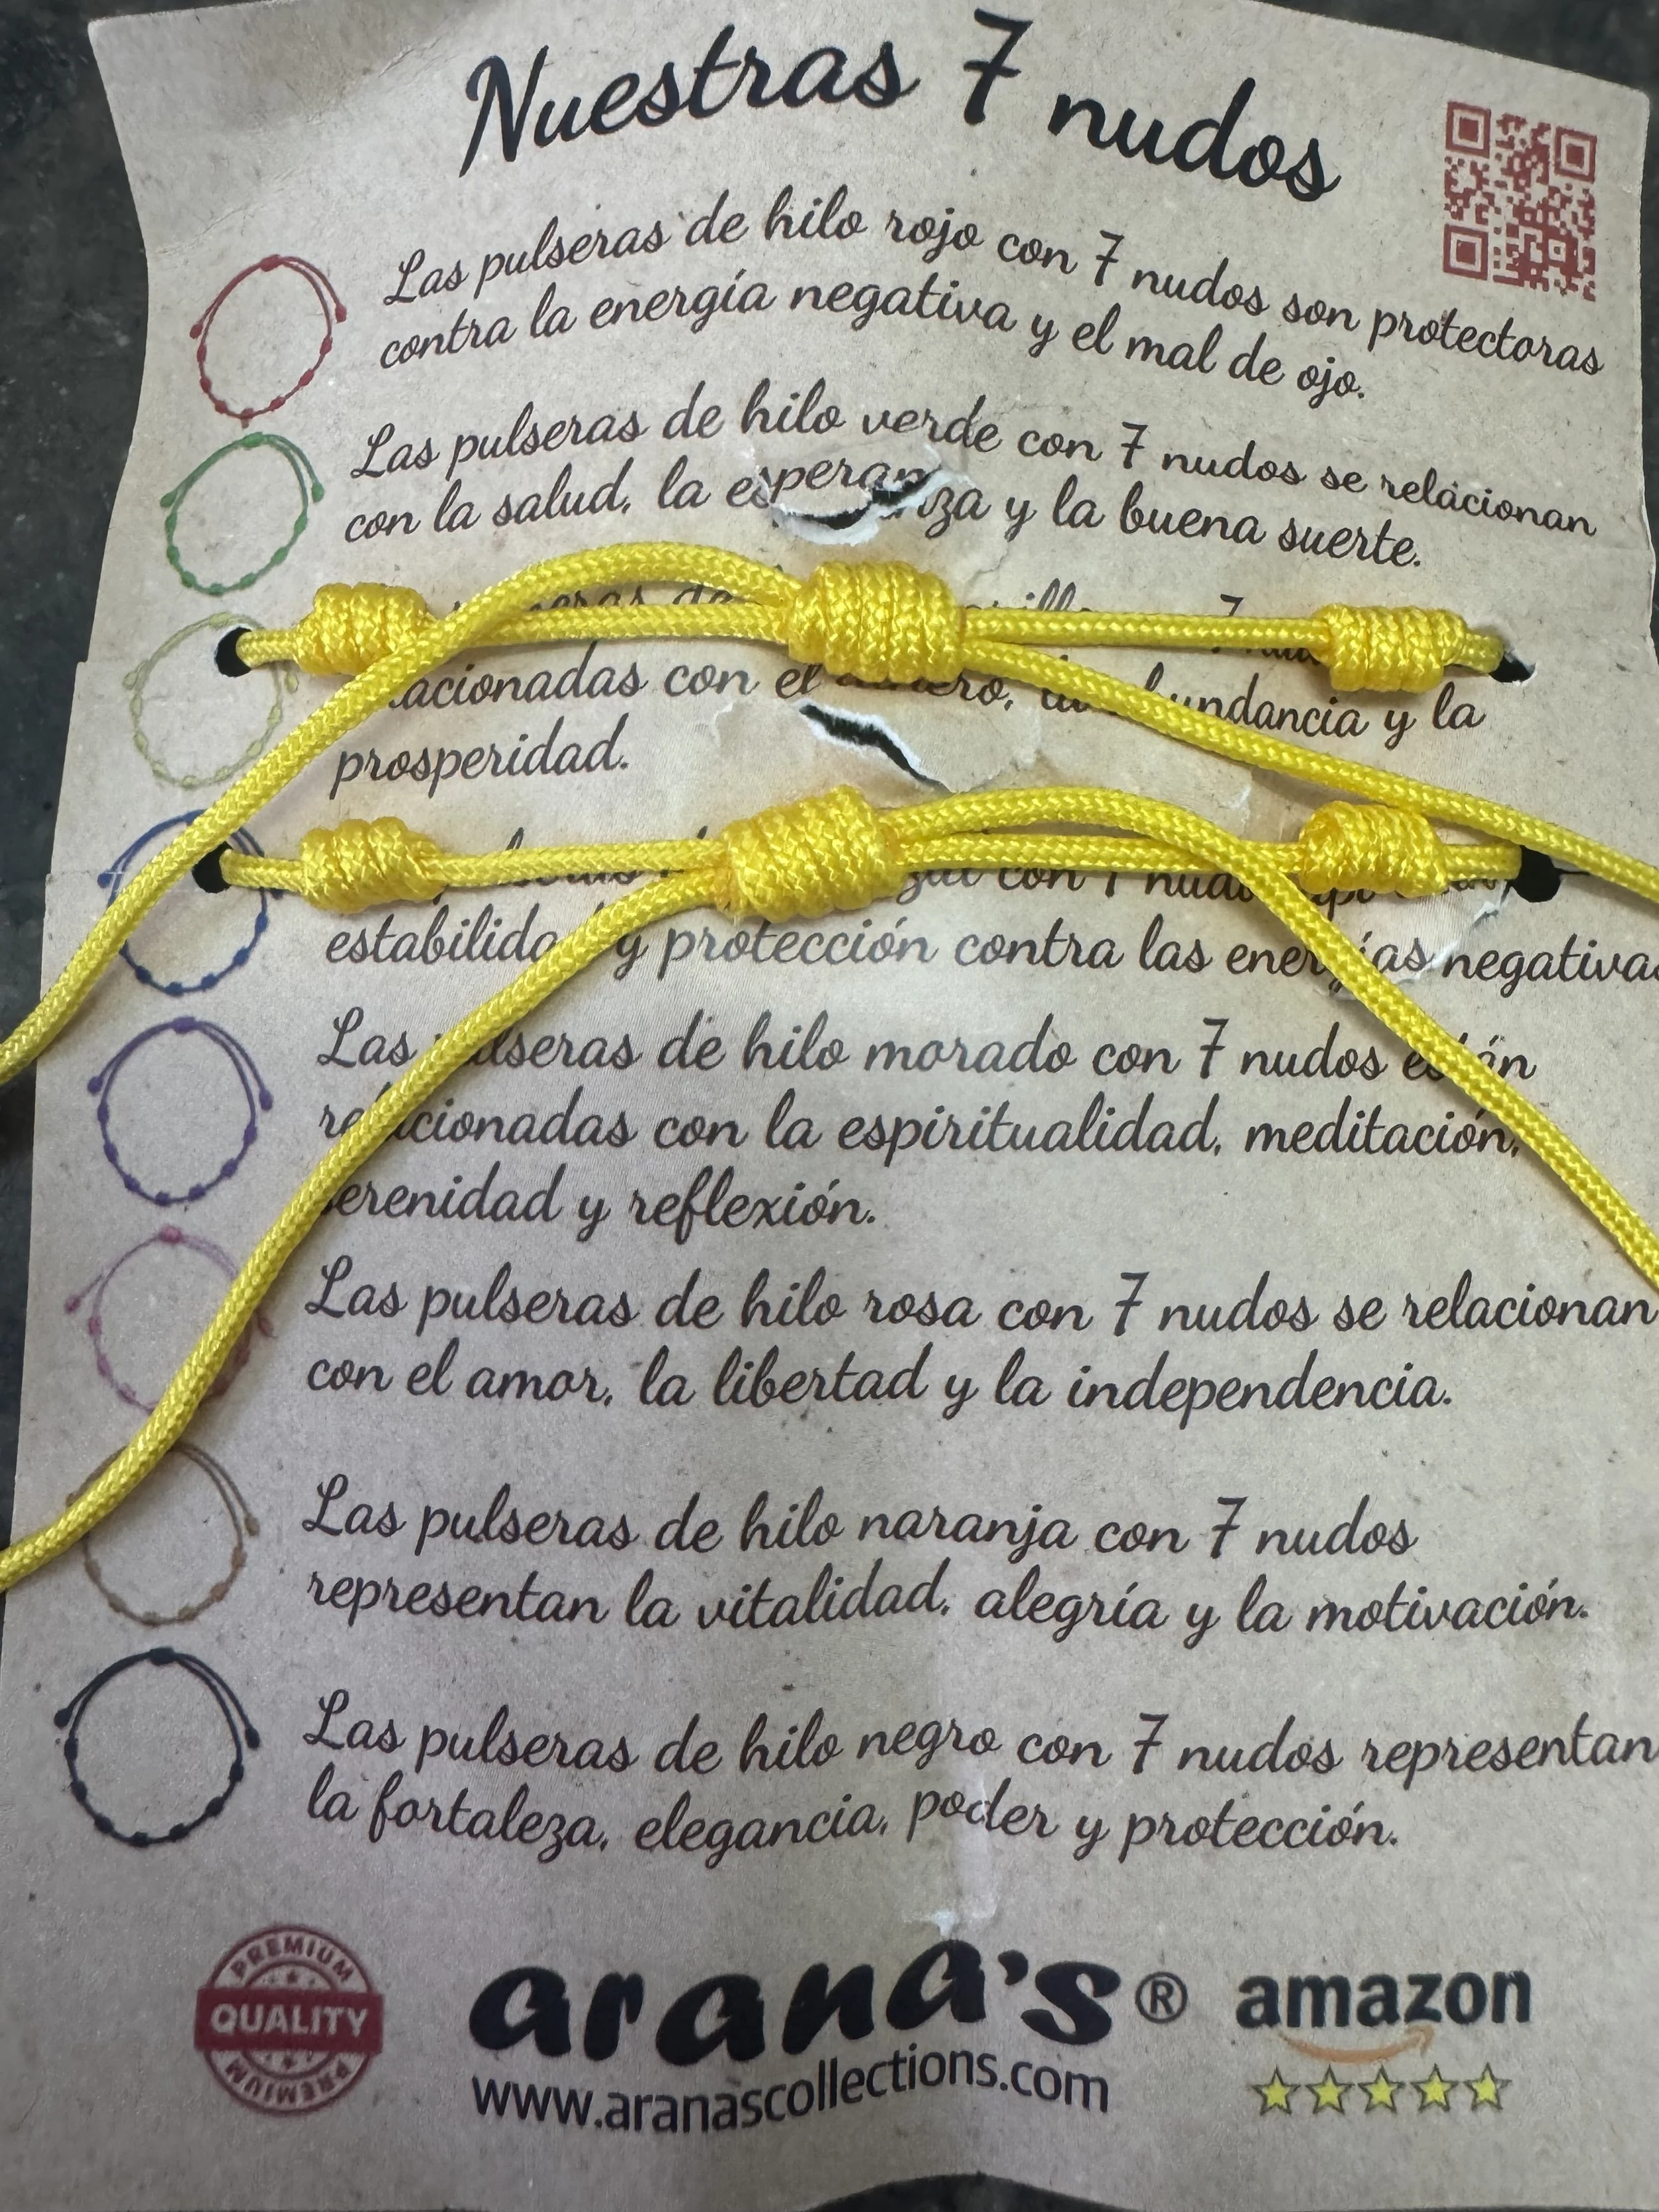 Nuestras 7 nudos
Las pulseras de hilo rojo con 7 nudos son protectoras
contra la energía negativa y el mal de ojo.
Las pulseras de hilo verde con 7 nudos se relacionan
con la salud, la esperanza y la buena suerte.
7
con el y la
prosperidad.
con 7
y protección contra las energías negativas
Las pulseras de hilo morado con 7 nudos están
relacionadas con la espiritualidad, meditación,
serenidad y reflexión.
Las pulseras de hilo rosa con 7 nudos se relacionan
con el amor, la libertad y la independencia.
Las pulseras de hilo naranja con 7 nudos
representan la vitalidad, alegría y la motivación.
Las pulseras de hilo negro con 7 nudos representan
la fortaleza, elegancia, poder y protección.
PREMIUM
QUALITY
PREMIUM
arana's®
www.aranascollections.com
amazon